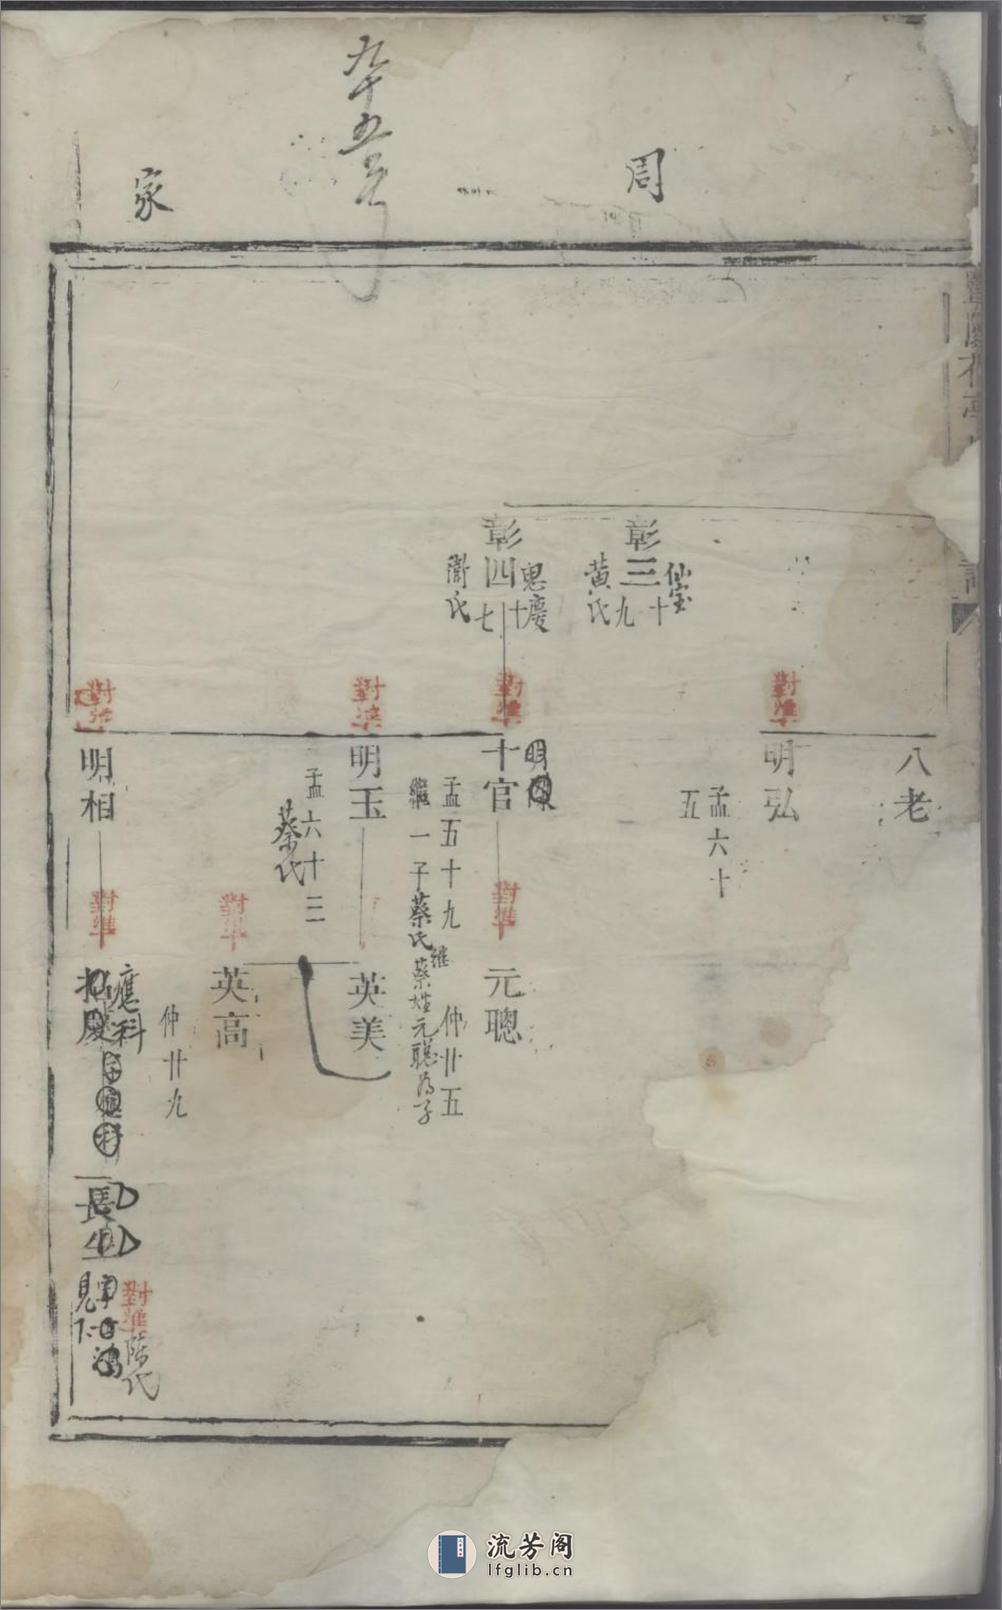 九十五号
周
家
彰三
仙宝
十九
黄氏
彰四
思慶
十七
衛氏
八老
對準
明弘
孟六十
五
對準
十官
明
孟五十九
繼一子蔡氏
继蔡姓元聰为子
對準
明玉
孟六十三
蔡氏
對準
明相
對準
元聰
仲廿五
英美
對準
英高
仲廿九
對準
應科
慶
長
對準
陈氏
流芳阁
lfglib.cn